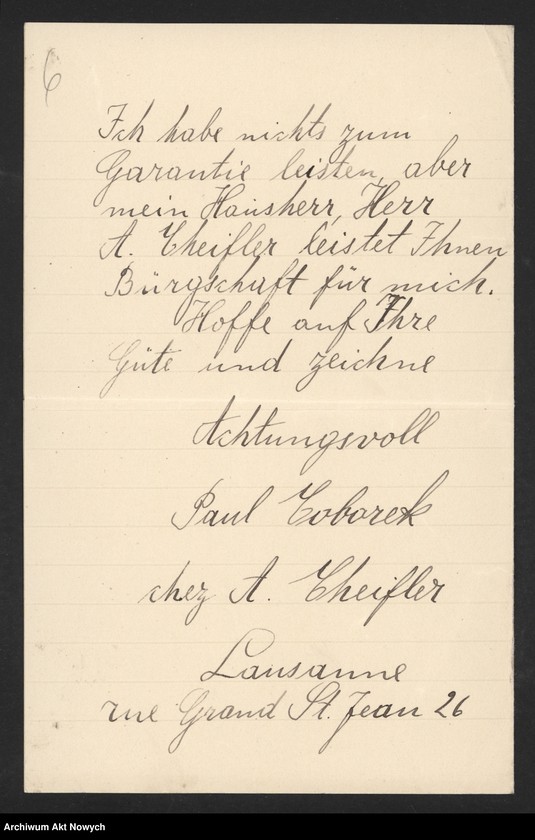 6
Ich habe nichts zum
Garantie leisten, aber
mein Hausherr, Herr
A. Theifler leistet Ihnen
Bürgschaft für mich.
Hoffe auf Ihre
Güte und zeichne
Achtungsvoll
Paul Toborek
chez A. Theifler
Lausanne
rue Grand St. Jean 26
Archiwum Akt Nowych